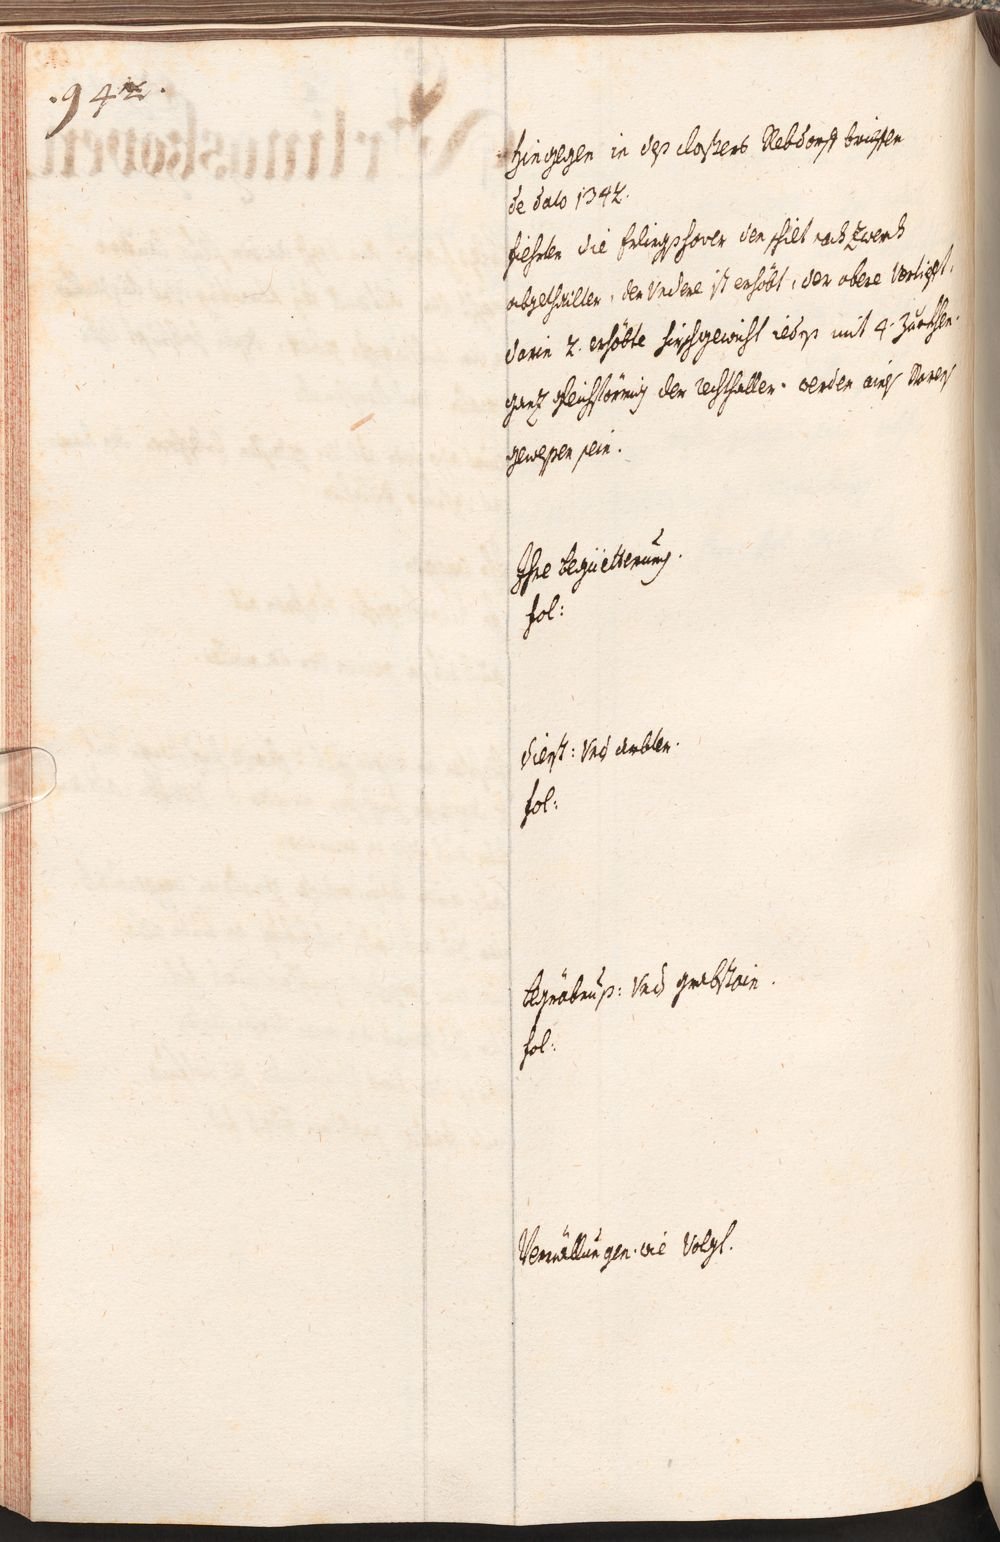 ·942·
hingegen in des closters Rebdorff brieffen
de dato 1342.
fiehrten die Erlingshover den schilt nach Zwerch
abgethailter, der Undere ist erhöbt, der obere Vertiefft,
darin 2. erhöbte hirschgewicht iedes mit 4. Zuckhen.
gantz gleichförmig der Rechthaller. werden aines Namens
gewessen sein.
Ihre begüetterung.
fol:
dienst: Und ambter.
fol:
begräbnuß: Und grabstain.
fol:
Vermällungen. wie Volgt.